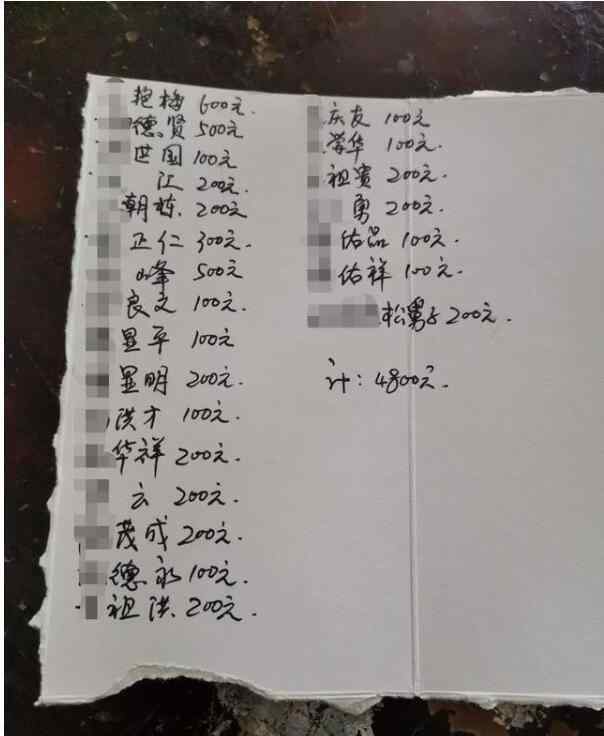 艳梅 600元.
德贤 500元
世国 100元
江 200元.
朝栋. 200元
正仁 300元.
峰 500元
良文 100元.
显平 100元
显明 200元.
洪才 100元.
华祥 200元.
云 200元.
茂成 200元.
德永 100元.
祖洪. 200元.
庆友 100元
荣华 100元.
祖宾 200元.
勇 200元.
佑品 100元.
佑祥 100元.
松舅子 200元.
计: 4800元.